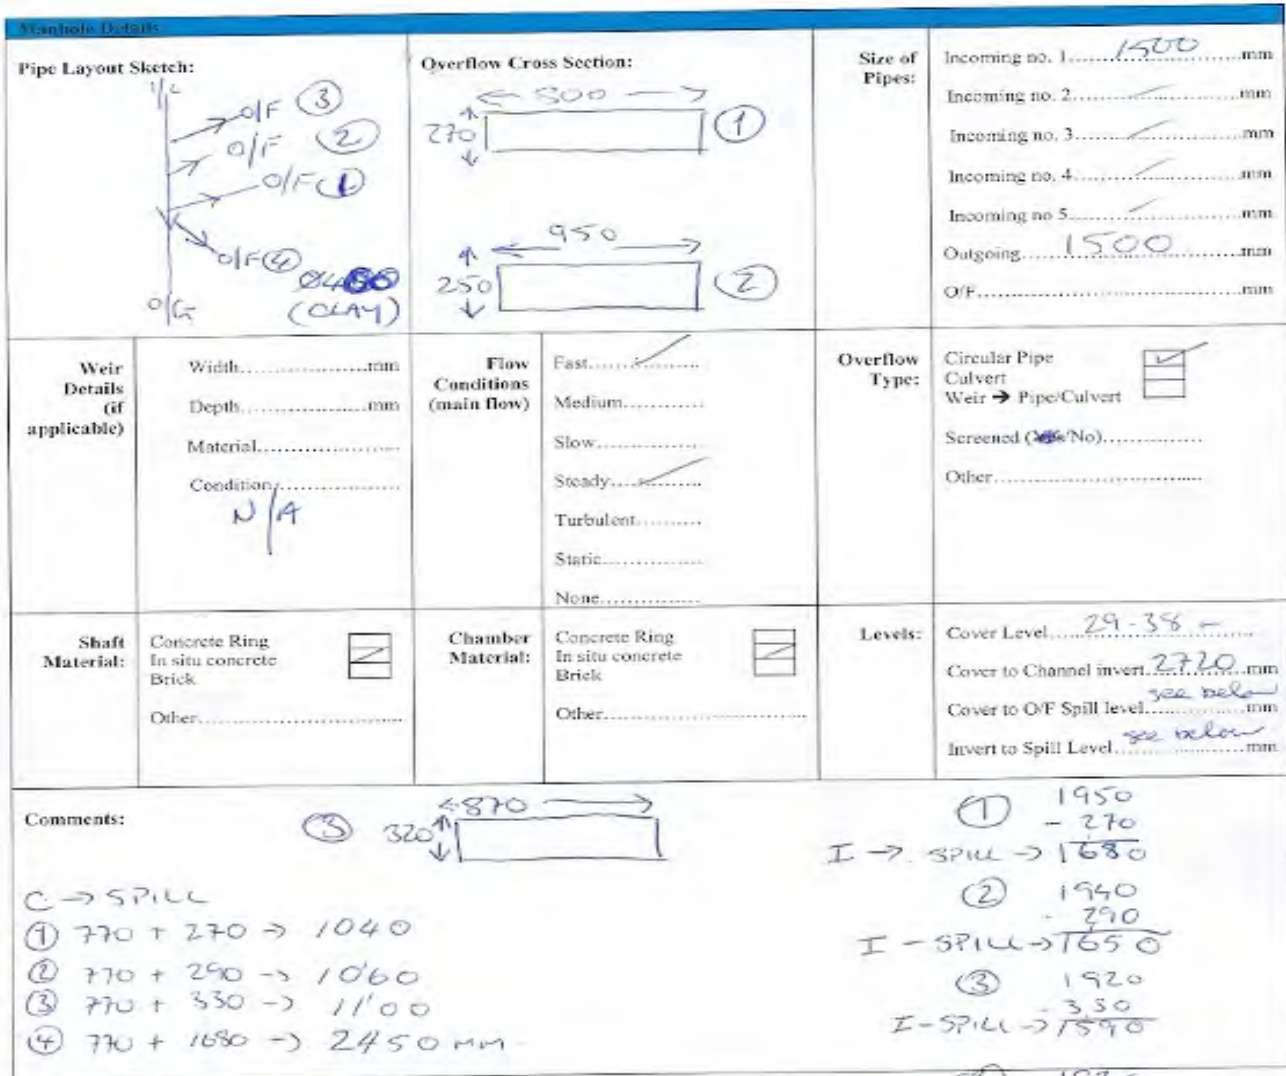 Manhole Details
Pipe Layout Sketch:
O/F ③
O/F ②
O/F ①
O/F ④
(CLAY)
O/G
Overflow Cross Section:
800
270 ①
950
250 ②
Size of Pipes:
Incoming no. 1 1500 mm
Incoming no. 2 mm
Incoming no. 3 mm
Incoming no. 4 mm
Incoming no 5 mm
Outgoing 1500 mm
O/F mm
Weir Details (if applicable)
Width mm
Depth mm
Material
Condition
N/A
Flow Conditions (main flow)
Fast
Medium
Slow
Steady
Turbulent
Static
None
Overflow Type:
Circular Pipe
Culvert
Weir → Pipe/Culvert
Screened (Yes/No)
Other
Shaft Material:
Concrete Ring
In situ concrete
Brick
Other
Chamber Material:
Concrete Ring
In situ concrete
Brick
Other
Levels:
Cover Level 29.38 -
Cover to Channel invert 2720 mm
Cover to O/F Spill level see below mm
Invert to Spill Level see below mm
Comments:
③ 870
320
C → SPILL
① 770 + 270 → 1040
② 770 + 290 → 1060
③ 770 + 330 → 1100
④ 770 + 1680 → 2450 MM
① 1950
- 270
I → SPILL → 1680
② 1940
- 290
I - SPILL → 1650
③ 1920
- 330
I - SPILL → 1590